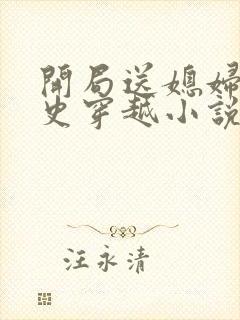 開局送媳婦
史穿越小說
汪永清